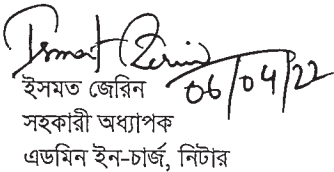 Ismat Zerin
06/04/22
ইসমত জেরিন
সহকারী অধ্যাপক
এডমিন ইন-চার্জ, নিটার